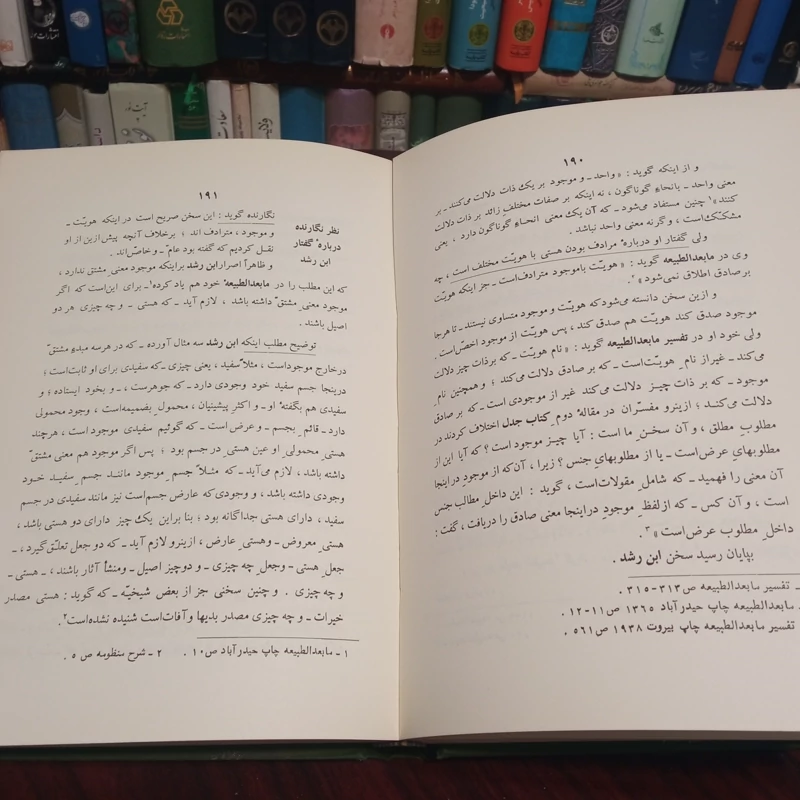 ۱۹۰
و از اینکه گوید : « واحد ـ و موجود بر یک ذات دلالت می‌کنند ـ بر
معنی واحد ـ بانحاءِ گوناگون ، نه اینکه بر صفات مختلفِ زائد بر ذات دلالت
کنند »۱ چنین مستفاد می‌شود ـ که آن یک معنی انحاءِ گوناگون دارد ، یعنی
مشکّک است ، و گرنه معنی واحد نباشد .
ولی گفتار او دربارهٔ مرادف بودن هستی با هویّت مختلف است ، چه
وی در مابعدالطبیعه گوید : « هویّت باموجود مترادف‌است ـ جز اینکه هویّت
برصادق اطلاق نمی‌شود »۲.
و ازین سخن دانسته می‌شود که هویّت و موجود متساوی نیستند ـ تا هرجا
موجود صدق کند هویّت هم صدق کند ، پس هویّت از موجود اخصّ‌است .
ولی خود او در تفسیر مابعدالطبیعه گوید : « نام هویّت ـ که برذات چیز دلالت
می‌کند ـ غیراز نامِ هویّت‌است ـ که بر صادق دلالت می‌کند ؛ و همچنین نامِ
موجود ـ که بر ذات چیـز دلالت می‌کند غیر از موجودی است ـ که بر صادق
دلالت می‌کنـد ؛ ازینرو مفسّران در مقالهٔ دومِ کتاب جدل اختلاف کردند در
مطلوبِ مطلق ، و آن سخـنِ ما است : آیا چیـز موجود است ؟ که آیا این از
مطلوبهایِ عرض‌است ـ یا از مطلوبهایِ جنس ؟ زیرا ، آن‌که از موجودِ دراینجا
آن معنی را فهمید ـ که شاملِ مقولات‌است ، گوید : این داخل مطالب جنس
است ، و آن کس ـ که ازلفظِ موجود دراینجا معنی صادق را دریافت ، گفت :
داخلِ مطلوب عرض‌است »۳ .
بپایان رسید سخن ابن رشد .
ـ تفسیر مابعدالطبیعه ص۳۱۳-۳۱۵ .
ـ مابعدالطبیعه چاپ حیدرآباد ۱۳۶۵ ص۱۱-۱۲ .
تفسیر مابعدالطبیعه چاپ بیروت ۱۹۳۸ ص۵۶۱ .
۱۹۱
نظر نگارنده
دربارهٔ گفتار
ابن رشد
نگارنده گوید : این سخن صریح است در اینکه هویّت ـ
و موجود ، مترادف اند ؛ برخلاف آنچه پیش‌ازین از او
نقل کردیم که گفته بود عامّ ـ و خاصّ‌اند .
و ظاهراً اصرار ابن رشد براینکه موجود معنی ِ مشتق ندارد ،
که این مطلب را در مابعدالطبیعهٔ خود هم یاد کرده۱ـ برای این‌است که اگر
موجود معنی ِ مشتقّ داشته باشد ، لازم آید ـ که هستی ـ و چه چیزی هر دو
اصیل باشند .
توضیح مطلب اینکه ابن رشد سه مثال آورده ـ که در هرسه مبدءِ مشتقّ
درخارج موجوداست ، مثلاً سفید ، یعنی چیزی ـ که سفیدی برای او ثابت‌است ؛
دراینجا جسم سفید خود وجودی دارد ـ که جوهرست ، و بخود ایستاده ؛ و
سفیدی هم بگفتهٔ او ـ و اکثرِ پیشینیان ، محمول بضمیمه‌است ، وجود محمولی
دارد ـ قائمِ بجسم ـ و عرض است ـ که گوئیم سفیدی موجود است ، هرچند
هستی ِ محمولی ِ او عین هستی ِ در جسم بود ؛ پس اگر موجود هم معنی مشتقّ
داشته باشد ، لازم می‌آید ـ که مثـلاً جسمِ موجود ماننـد جسمِ سفیـد خـود
وجودی داشته باشد ، و وجودی‌که عارض جسم‌است نیز مانند سفیدی در جسم
سفید ، دارای هستی جداگانه بود ؛ بنا براین یک چیز دارای دو هستی باشد ،
هستی ِ معروض ـ و هستی ِ عارض ، ازینرو لازم آید ـ که دو جعل تعلّق‌گیرد ،ـ
جعلِ هستی ـ وجعلِ چه چیزی ـ و دوچیز اصیل ـ ومنشأ آثار باشند ، ـ هستی ـ
و چه چیزی . و چنین سخنی جز از بعض شیخیّه ـ که گوید : هستی مصدر
خیرات ـ و چه چیزی مصدر بدیها و آفات‌است شنیده نشده‌است۲.
۱ ـ مابعدالطبیعه چاپ حیدرآباد ص۱۰ . ۲ ـ شرح منظومه ص ۵ .